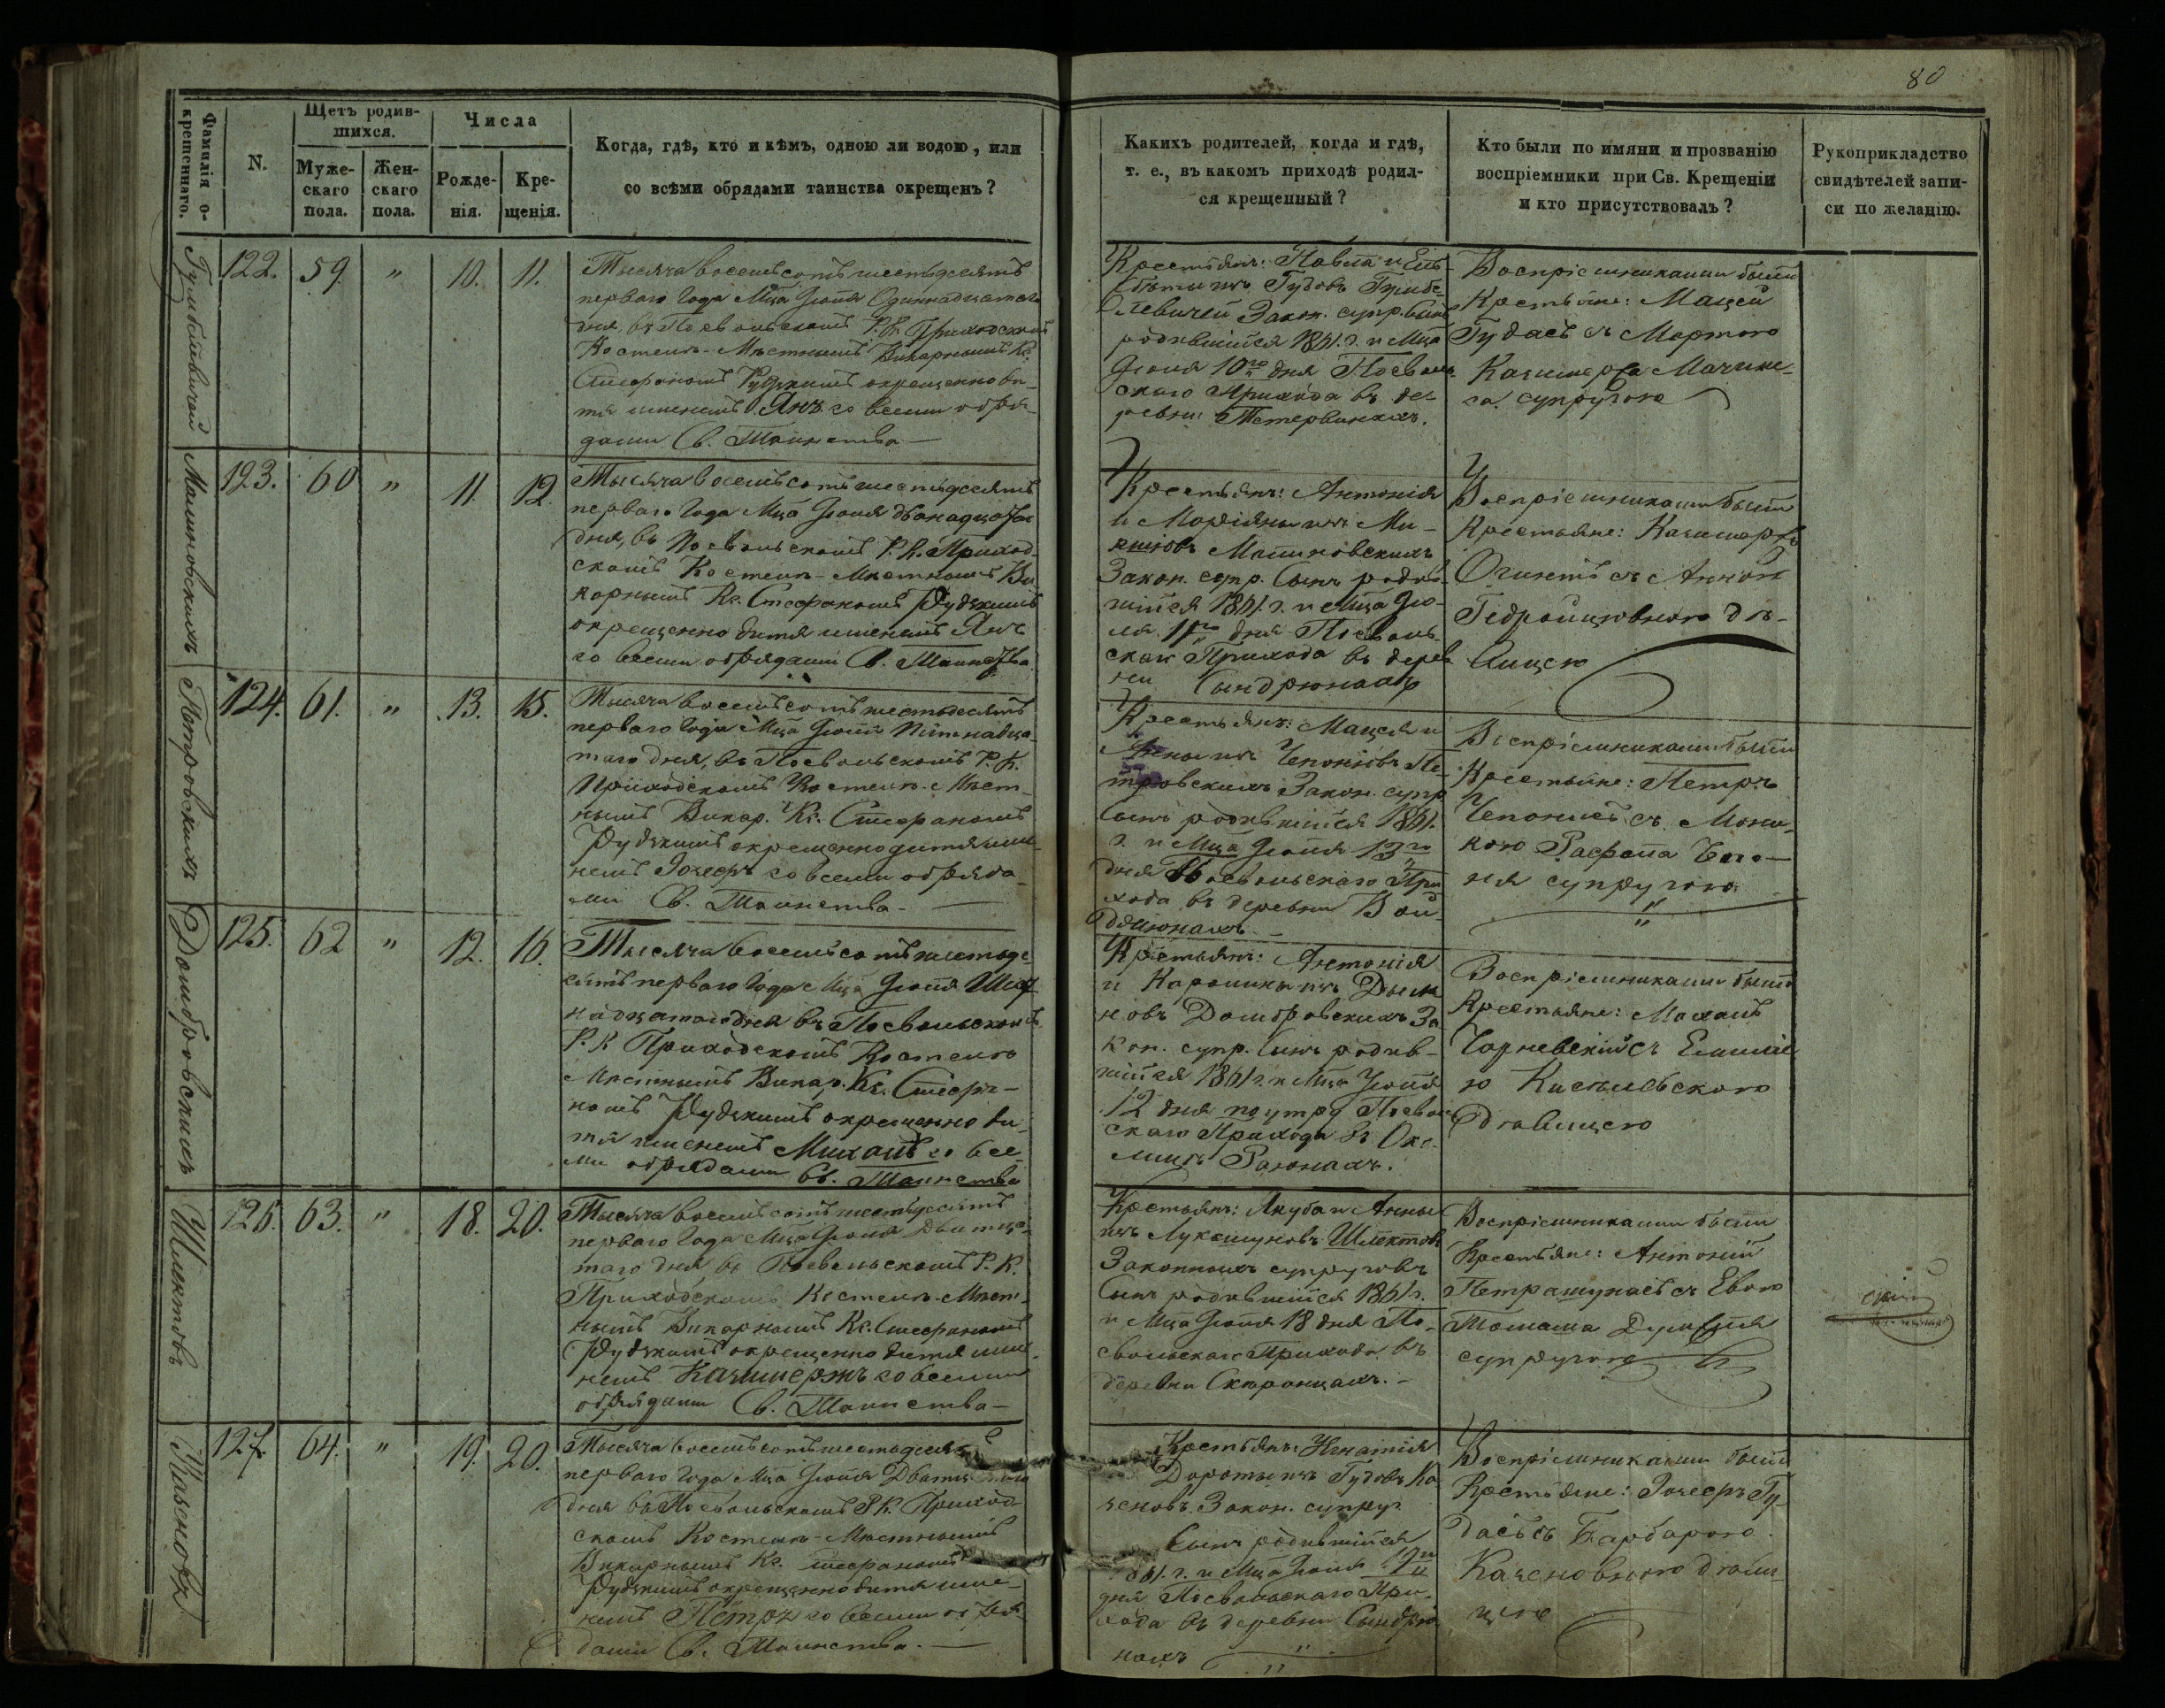 80
Фамилія о-
крещеннаго.
N.
Щетъ родив-
шихся.
Муже-
скаго
пола.
Жен-
скаго
пола.
Числа
Рожде-
нія.
Кре-
щенія.
Когда, гдѣ, кто и кѣмъ, одною ли водою, или
со всѣми обрядами таинства окрещенъ?
Какихъ родителей, когда и гдѣ,
т. е., въ какомъ приходѣ родил-
ся крещенный?
Кто были по имяни и прозванію
воспріемники при Св. Крещеніи
и кто присутствовалъ?
Рукоприкладство
свидѣтелей запи-
си по желанію.
122. 59. " 10. 11.
Тысяча восемьсотъ шестьдесятъ
перваго года Мца Іюля Одиннадцатаго
дня, въ Посвольскомъ Р. К. Приходскомъ
Костелѣ - Мѣстнымъ Викарнымъ Кс.
Стефаномъ Рудзкимъ окрещенно ди-
тя именемъ Янъ со всеми обря-
дами Св. Таинства
Крестьянъ: Павла и
Гудовъ
Закон. супр. Сынъ
родившійся 1861. г. и Мца
Іюля 10го дня Посволь-
скаго Прихода въ де-
ревни Тетервинахъ.
Воспріемниками были
Крестьяне: Мацей
Гудасъ съ Мартою
Казимера
супругою
Малиновскихъ
123. 60 " 11. 12.
Тысяча восемьсотъ шестьдесятъ
перваго года Мца Іюля двонадцатаго
дня, въ Посвольскомъ Р. К. Приход-
скомъ Костелѣ - Мѣстнымъ Ви-
карнымъ Кс. Стефаномъ Рудзкимъ
окрещенно дитя именемъ Янъ
со всеми обрядами Св. Таинства
Крестьянъ: Антонія
и Маріянны изъ
Малиновскихъ
Закон. супр. Сынъ родив-
шійся 1861. г. и Мца Ію-
ля 11го дня Посволь-
скаго Прихода въ дерев-
ни Сындрюнахъ
Воспріемниками были
Крестьяне: Казимеръ
съ Анною
Гедройцювною дѣ-
вицею
Петровскихъ
124. 61. " 13. 15.
Тысяча восемьсотъ шестьдесятъ
перваго года Мца Іюля Пятнадца-
таго дня, въ Посвольскомъ Р. К.
Приходскомъ Костелѣ - Мѣст-
нымъ Викар. Кс. Стефаномъ
Рудзкимъ окрещенно дитя име-
немъ Іозефъ со всеми обряда-
ми Св. Таинства
Крестьянъ: Мацея и
Анны изъ Чепонюовъ Пе-
тровскихъ Закон. супр.
Сынъ родившійся 1861.
г. и Мца Іюля 13го
дня Посвольскаго При-
хода въ деревни
Воспріемниками были
Крестьяне: Петръ
Чепонисъ съ Мони-
кою
супругою
Домбровскихъ
125. 62 " 12. 16.
Тысяча восемьсотъ шестьде-
сятъ перваго года Мца Іюля Шест-
надцатаго дня въ Посвольскомъ
Р. К. Приходскомъ Костелѣ
Мѣстнымъ Викар. Кс. Стефа-
номъ Рудзкимъ окрещенно ди-
тя именемъ Михаилъ со все-
ми обрядами Св. Таинства
Крестьянъ: Антонія
и Каролины изъ
Домбровскихъ За-
кон. супр. Сынъ родив-
шійся 1861 г. и Мца Іюля
12 дня по утру Посволь-
скаго Прихода въ Око-
лицѣ Раюнахъ.
Воспріемниками были
Крестьяне:
Чарневскій съ Емилі-
ю
дѣвицею
Шлектовъ
126. 63. " 18. 20.
Тысяча восемьсотъ шестьдесятъ
перваго года Мца Іюля Двадца-
таго дня, въ Посвольскомъ Р. К.
Приходскомъ Костелѣ - Мѣст-
нымъ Викарнымъ Кс. Стефаномъ
Рудзкимъ окрещенно дитя име-
немъ Казимержъ со всеми
обрядами Св. Таинства
Крестьянъ: Якуба и Анны
изъ Лукашуновъ Шлектовъ
Законныхъ супруговъ
Сынъ родившійся 1861 г.
и Мца Іюля 18 дня По-
свольскаго Прихода въ
деревни
Воспріемниками были
Крестьяне: Антоній
съ Евою
Томаша
супругою
127. 64. " 19. 20.
Тысяча восемьсотъ шестьдесятъ
перваго года Мца Іюля Двадцатаго
дня въ Посвольскомъ Р. К. Приход-
скомъ Костелѣ - Мѣстнымъ
Викарнымъ Кс. Стефаномъ
Рудзкимъ окрещенно дитя име-
немъ Петръ со всеми обря-
дами Св. Таинства.
Крестьянъ: Игнатія
Дороты изъ Гудовъ
Закон. супруг
Сынъ родившійся
61. г. и Мца Іюля 19го
дня Посвольскаго При-
хода въ деревни Сындрю-
нахъ
Воспріемниками были
Крестьяне: Іозефъ Гу-
дасъ съ Барбарою
дѣви-
цею